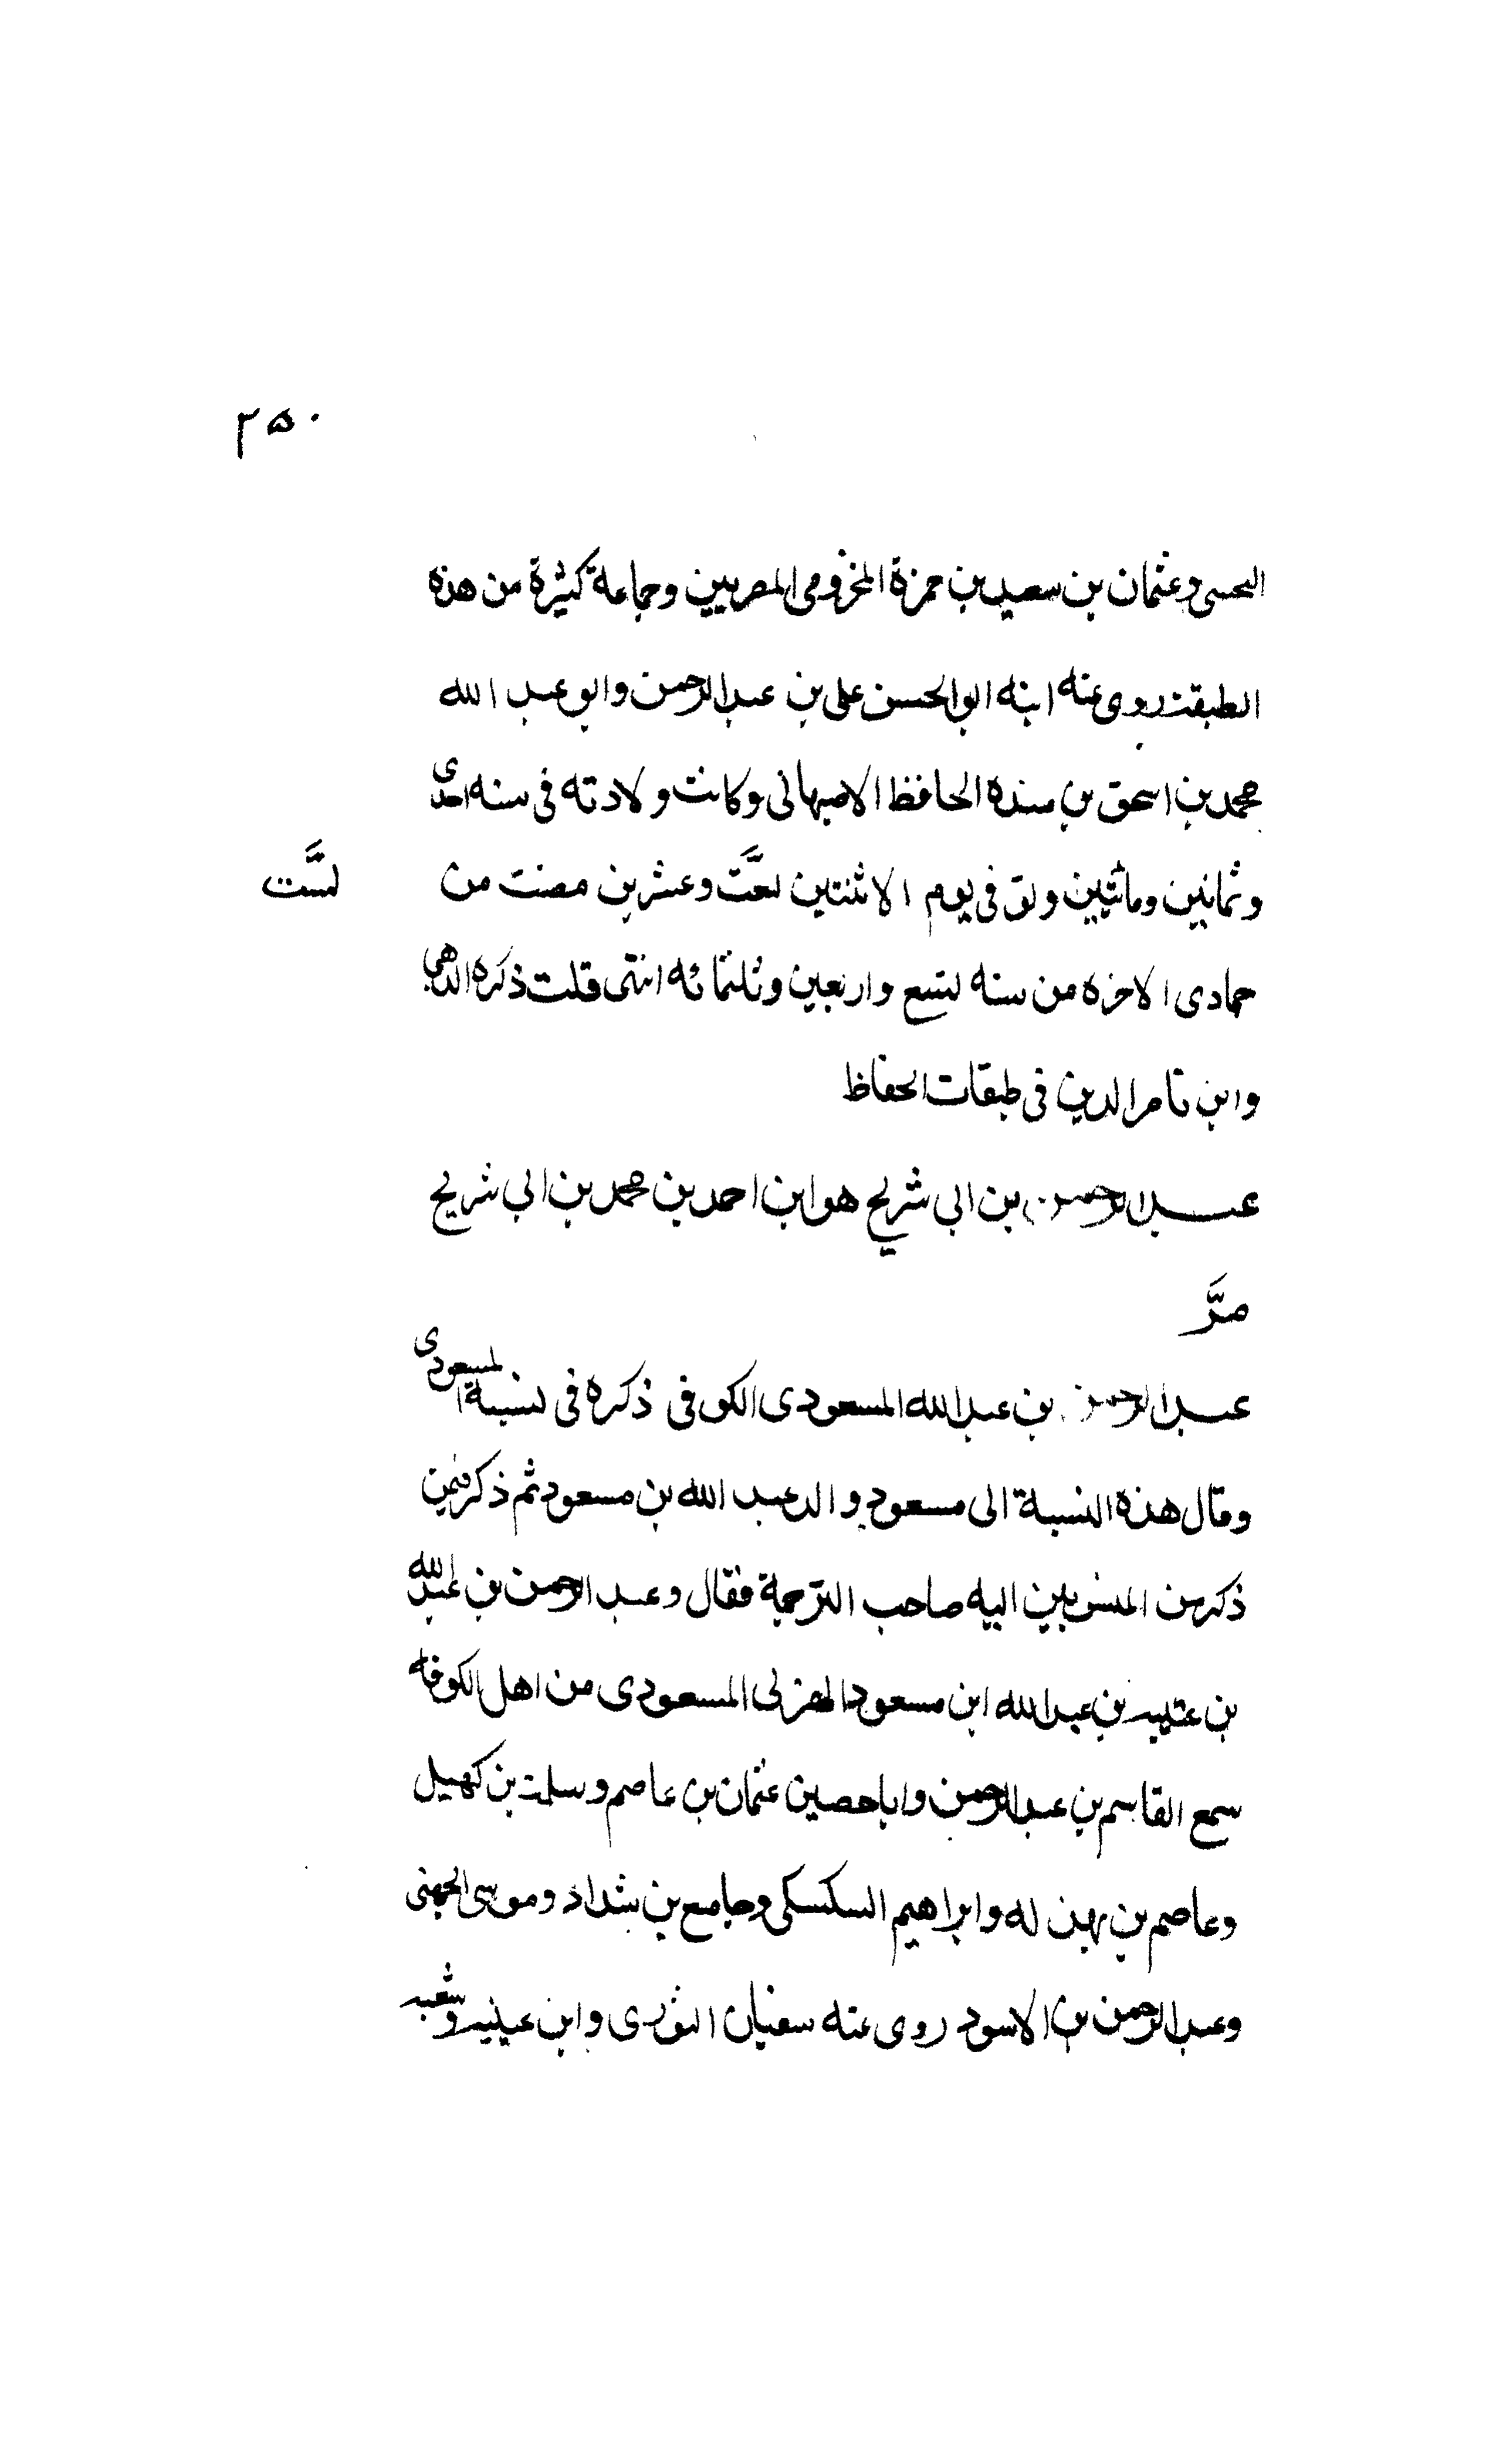 ٢٥٠
وعثمان بن سعيد بن حمزة المخزومى المصريين وجماعة كثيرة من هذه
الطبقة روى عنه ابنه ابو الحسن على بن عبد الرحمن وابو عبد الله
محمد بن اسحق بن منده الحافظ الاصبهانى وكانت ولادته فى سنه احدى
وثمانين ومائتين وتوفى يوم الاثنتين لعت وعشرين مضت من
لست
جمادى الاخره من سنه تسع واربعين وثلثمائه انتهى قلت ذكره الذهبى
وابن ناصر الدين فى طبقات الحفاظ
عبد الرحمن بن ابى شريح هو ابن احمد بن محمد بن ابى شريح
مرَّ
عبد الرحمن بن عبد الله المسعودى الكوفى ذكره فى نسبة المسعودى
وقال هذه النسبة الى مسعود والد عبد الله بن مسعود ثم ذكر فيمن
ذكر من المنسوبين اليه صاحب الترجمة فقال وعبد الرحمن بن عبد الله
بن عتبيه بن عبد الله ابن مسعود الهزلى المسعودى من اهل الكوفه
سمع القاسم بن عبد الرحمن واباحصين عثمان بن عاصم وسلمة بن كهيل
وعاصم بن بهدله وابراهيم السكسكى وجامع بن شداد وموسى الجهنى
وعبد الرحمن بن الاسود روى عنه سفيان الثورى وابن عيينيه وشعبه